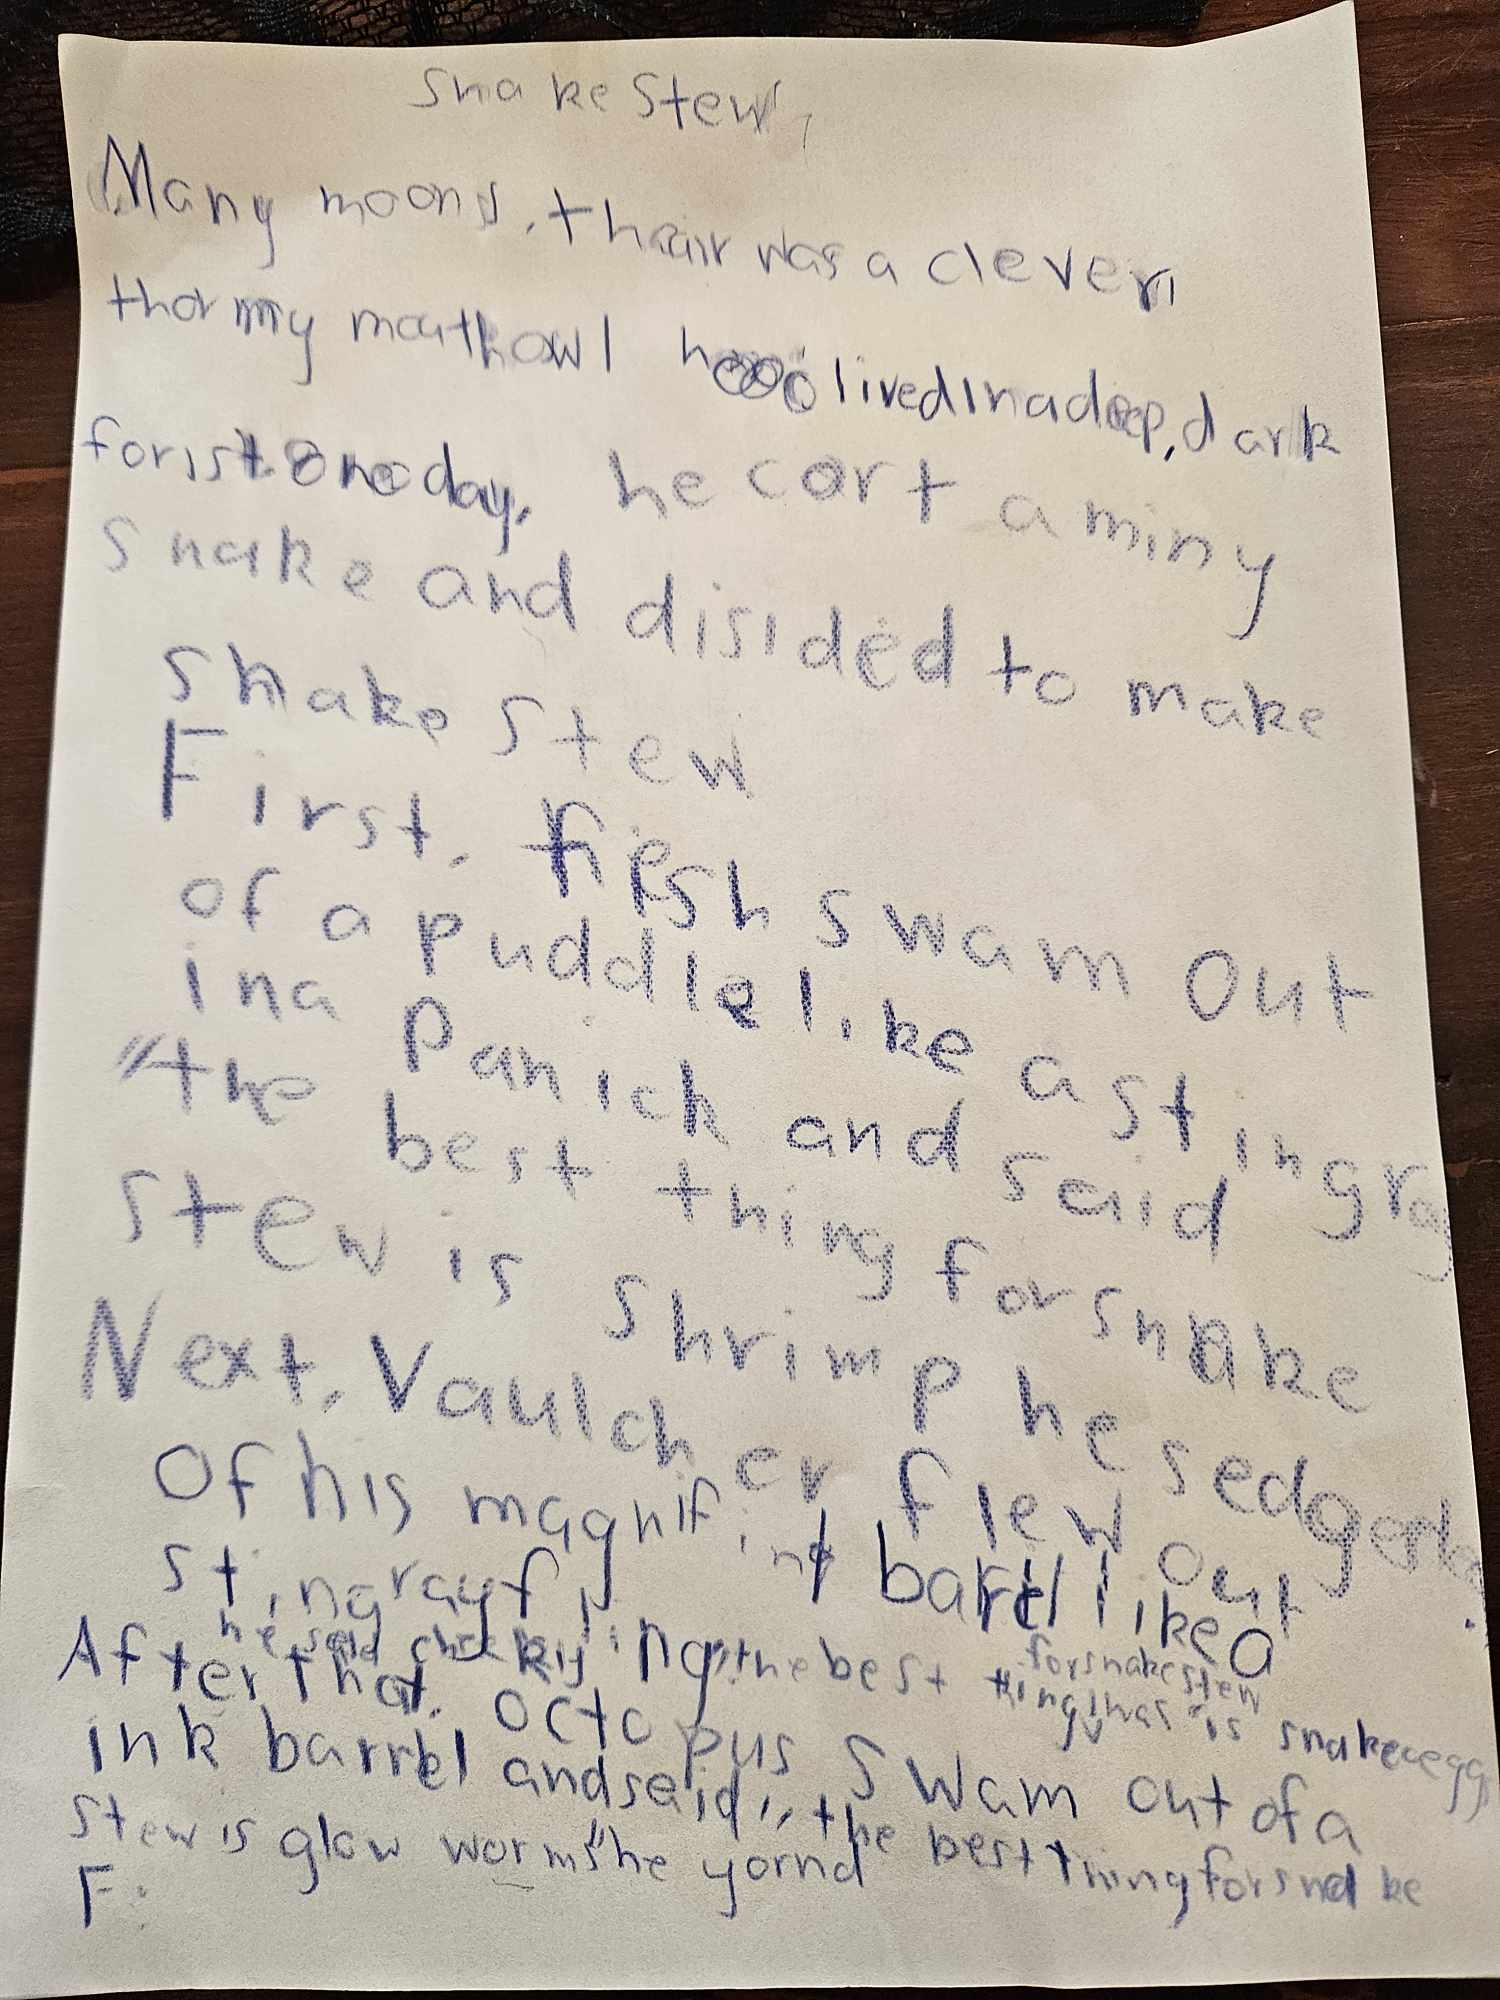 Snake Stew,
Many moons, thair was a clever
thorny mouth owl hoo lived in a deep, dark
forist. One day, he cort a miny
snake and disided to make
snake stew
First, Fish swam out
of a puddle like a stingray
in a Panick and said
"the best thing for snake
stew is shrimp he sed
Next, Vaulcher flew out
Of his magnifint barrel like a
stingray flying "the best thing for snake stew is snake egg
he said cheekily
After that, octopus swam out of a
ink barrel and said, "the best thing for snake
stew is glow worms" he yornd
F